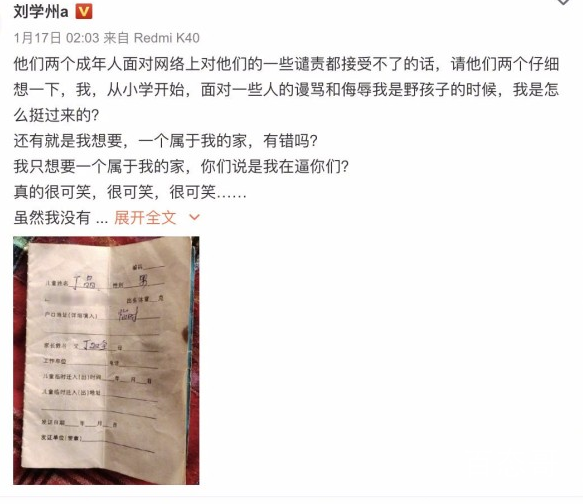 刘学州a
1月17日 02:03 来自 Redmi K40
他们两个成年人面对网络上对他们的一些谴责都接受不了的话，请他们两个仔细
想一下，我，从小学开始，面对一些人的谩骂和侮辱我是野孩子的时候，我是怎
么挺过来的?
还有就是我想要，一个属于我的家，有错吗?
我只想要一个属于我的家，你们说是我在逼你们?
真的很可笑，很可笑，很可笑……
虽然我没有 ... 展开全文
编码
儿童姓名 性别 男
户口地址(详细填入) 临时
家长姓名 父 母
工作单位
儿童临时迁入(出)时间 年 月 日
儿童临时迁入(出)地址
发证日期 年 月 日
发证单位(签章)